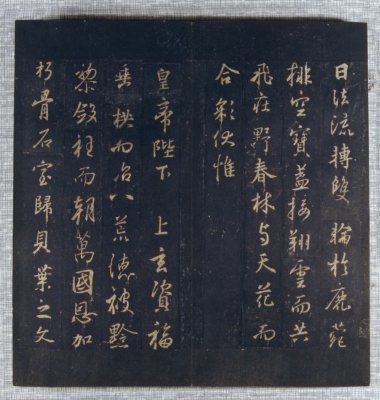 日法流轉雙輪於鹿菀
排空寶蓋接翔雲而共
飛莊野春林与天花而
合彩伏惟
皇帝陛下 上玄資福
垂拱而治八荒德被黔
黎斂衽而朝萬國恩加
朽骨石室歸貝葉之文